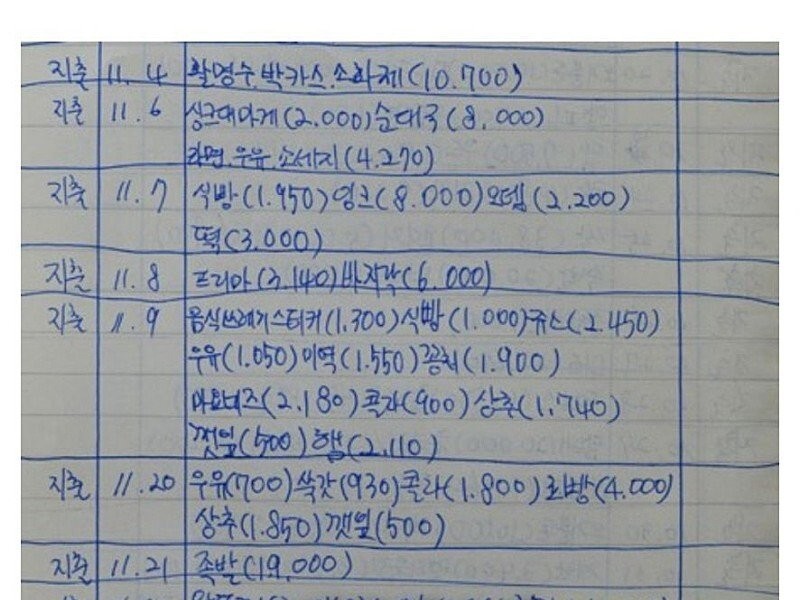 지출 11. 4 활명수.박카스.소화제(10.700)
지출 11. 6 싱크대마개(2.000)순대국(8,000)
라면.우유.소세지(4.270)
지출 11. 7 식빵(1.950)잉크(8.000)오뎅(2.200)
떡(3.000)
지출 11. 8 프리마(3.140)바지락(6.000)
지출 11. 9 음식쓰레기스티커(1.300)식빵(1.000)쥬스(2.450)
우유(1.050)미역(1.550)꽁치(1.900)
마요네즈(2.180)콜라(900)상추(1.740)
깻잎(500)햄(2.110)
지출 11.20 우유(700)쑥갓(930)콜라(1.800)(4.000)
상추(1.850)깻잎(500)
지출 11.21 족발(19,000)